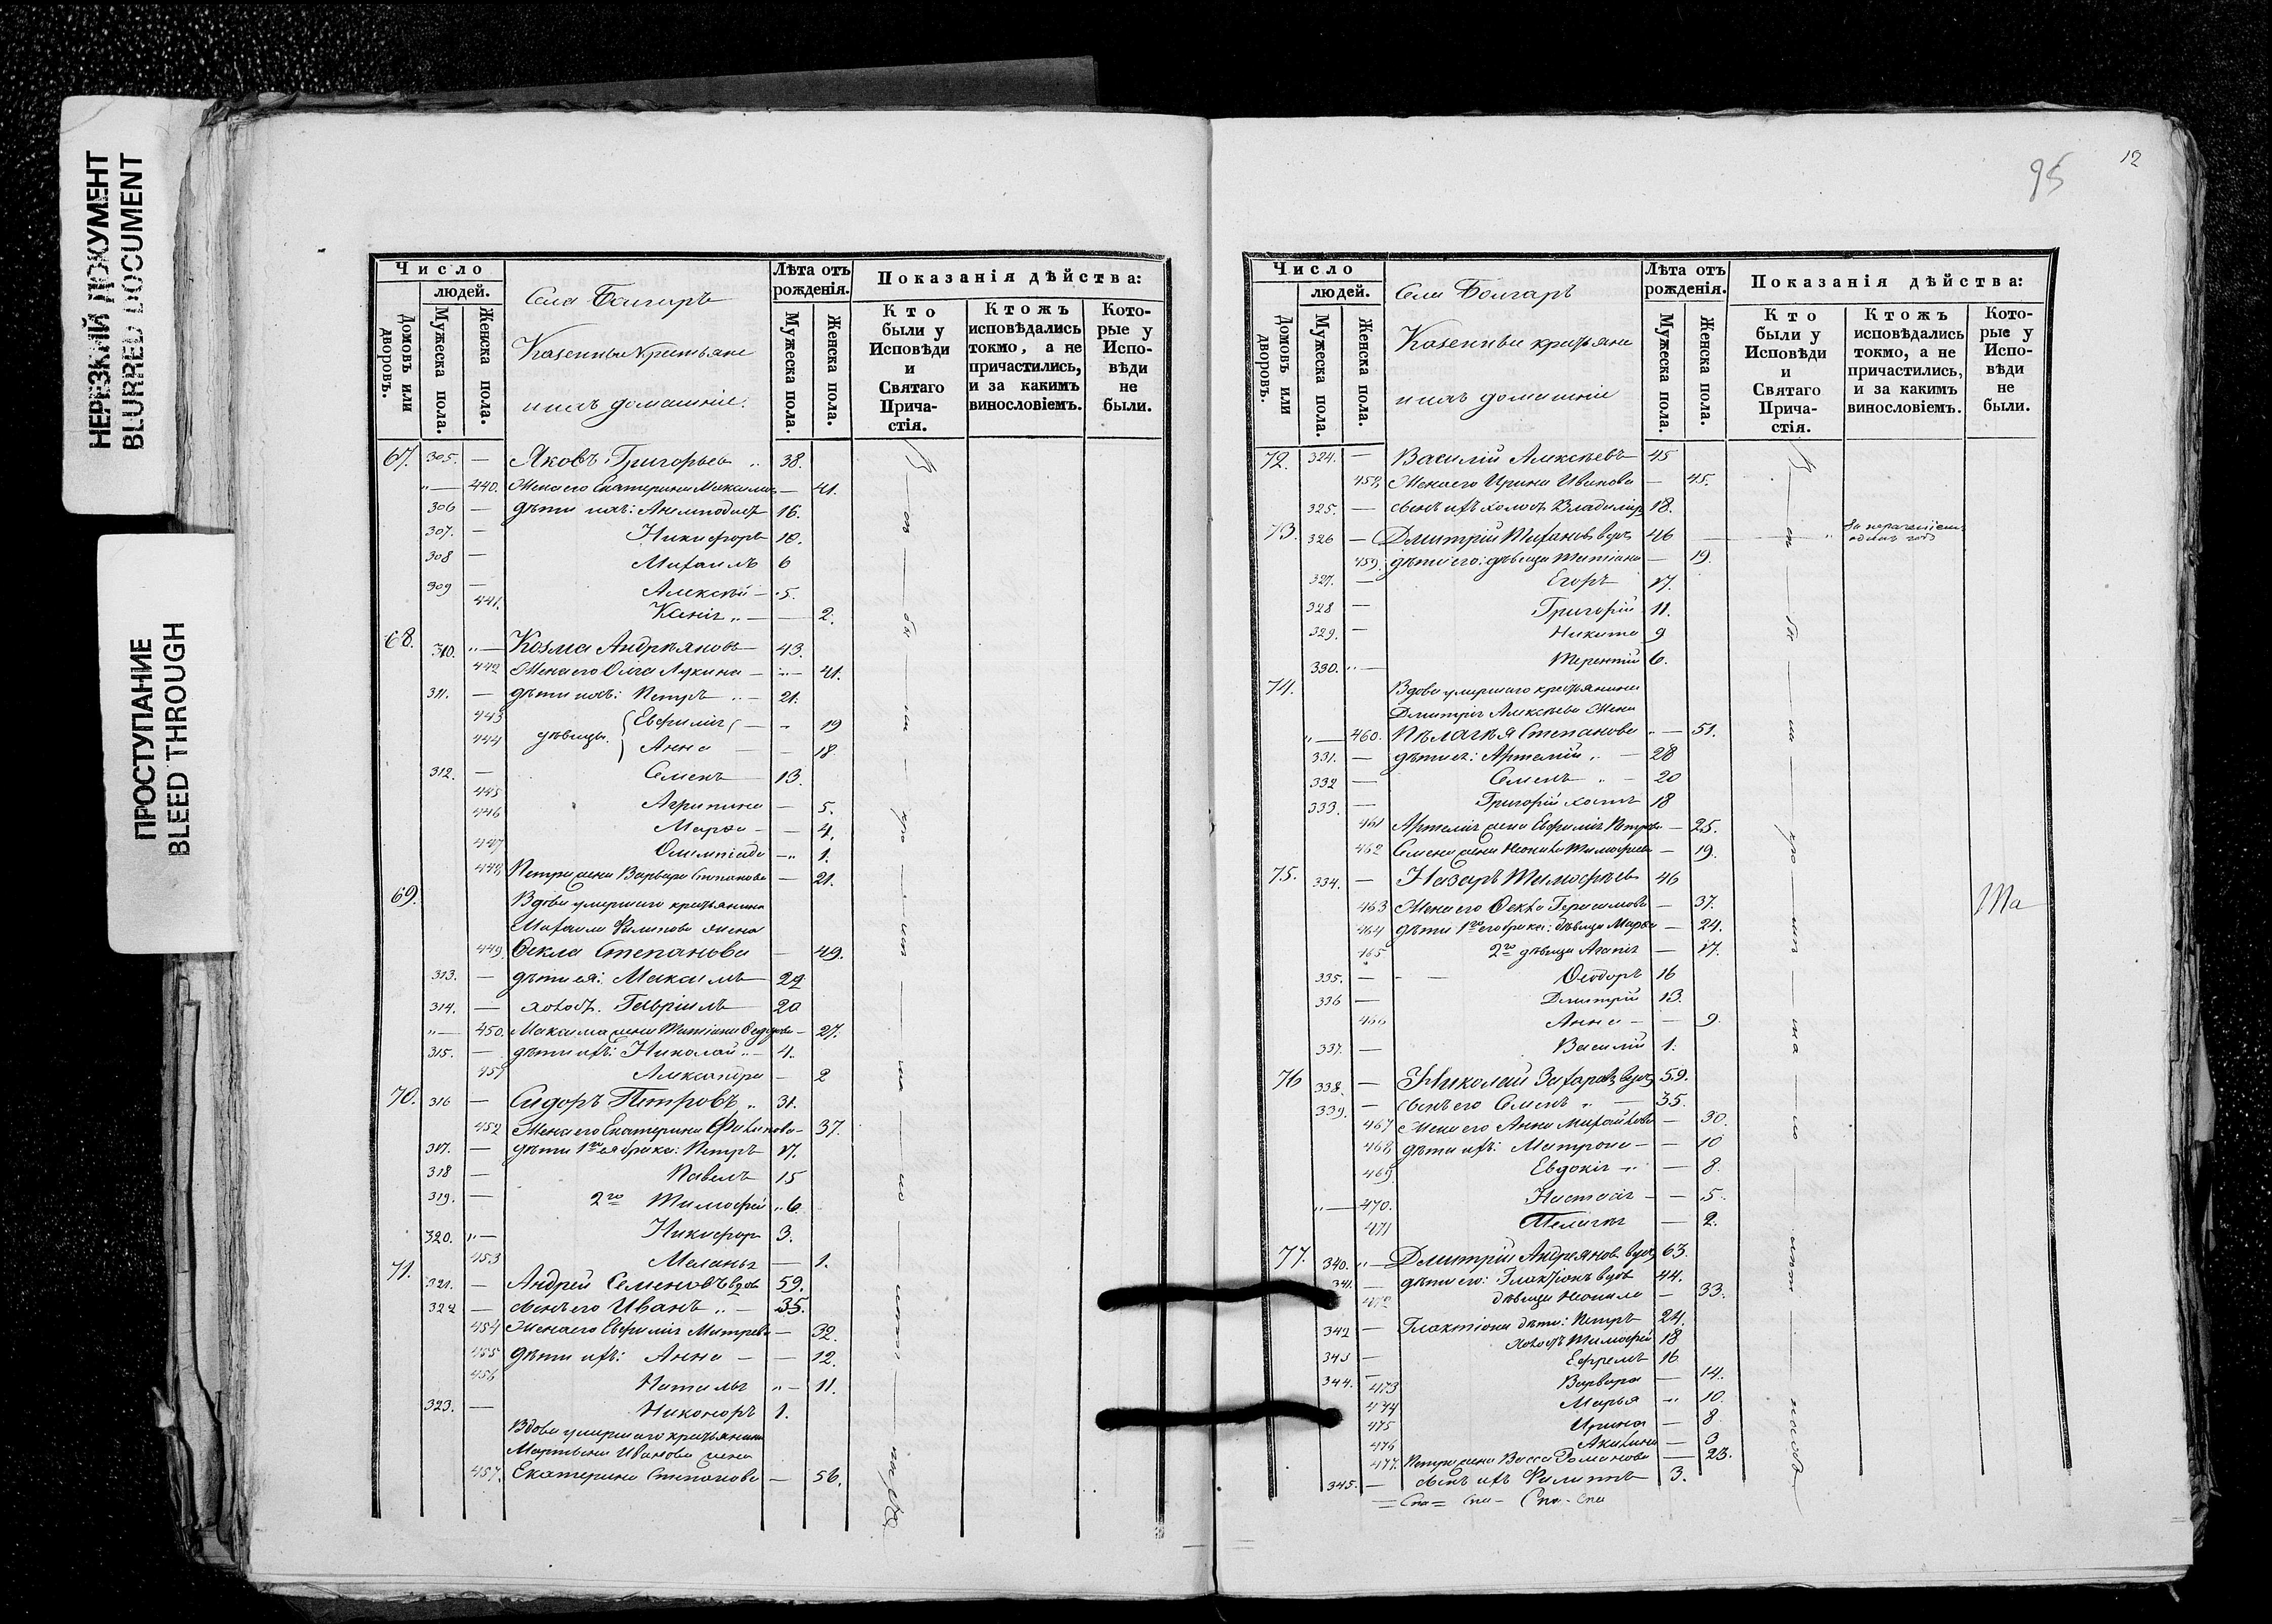 НЕРЕЗКИЙ ДОКУМЕНТ
BLURRED DOCUMENT
ПРОСТУПАНИЕ
BLEED THROUGH
Число
людей.
Домовъ или дворовъ.
Мужеска пола.
Женска пола.
Села Болгаръ
Казенные крестьяне
и ихъ домашніе.
Лѣта отъ рожденія.
Мужеска пола.
Женска пола.
Показанія дѣйства:
Кто были у Исповѣди и Святаго Прича-стія.
Ктожъ исповѣдались токмо, а не причастились, и за какимъ винословіемъ.
Кото-рые у Испо-вѣди не были.
67. 305. — Яковъ Григорьевъ „ 38.
„ — 440. Жена его Екатерина Максимова — 41.
306 — дѣти ихъ: 16.
307. — Никифоръ 10.
308 — Михаилъ 6
309 — Алексѣй — 5.
441. Ксенія „ — — 2.
68. 310. „ — Козма Андреяновъ — 43.
442 Жена его Олга Лукина — „ — 41.
311. — дѣти ихъ: Петръ „ — 21.
443 дѣвицы Евфимія — „ 19
444 Анна — — 18.
312. — Семенъ — 13.
445 Агрипина — 5.
446 Марфа — — 4.
447 Олимпіада — „ 1.
448 Петра жена Варвара Степанова — 21.
69. Вдова умершаго крестьянина
Михаила Филипова жена
449 Ѳекла Степанова — 49.
313. — дѣти ея: Максимъ — 29
314. — холостъ Гавріилъ — 20
„ — 450. Максима жена Татіана Ѳедорова — 27.
315. — дѣти ихъ: Николай „ — 4.
451 Александра — 2
70. 316 — Сидоръ Петровъ „ 31.
452 Жена его Екатерина Филипова — 37.
317. — дѣти 1го ея брака: Петръ 17.
318 — Павелъ 15
319. — 2го Тимофей „ 6.
320. „ — Никифоръ 3.
453 Меланья — 1.
71. 321. — Андрей Семеновъ вдовъ 59.
322 — сынъ его Иванъ „ — 35.
454 Жена его Евфимія Митрева — 32.
455 дѣти ихъ: Анна — — 12.
456 Наталья „ — 11.
323. — Никоноръ 1.
Вдова умершаго крестьянина
Мартына Иванова жена
457. Екатерина Степанова — 56.
95
12
Число
людей.
Домовъ или дворовъ.
Мужеска пола.
Женска пола.
Села Болгаръ
Казенные крестьяне
и ихъ домашніе
Лѣта отъ рожденія.
Мужеска пола.
Женска пола.
Показанія дѣйства:
Кто были у Исповѣди и Святаго Прича-стія.
Ктожъ исповѣдались токмо, а не причастились, и за какимъ винословіемъ.
Кото-рые у Испо-вѣди не были.
72. 324. — Василій Алексѣевъ 45
458. Жена его Ирина Иванова — 45.
325. — сынъ ихъ холостъ Владиміръ 18.
73. 326 — Дмитрій вдовъ 46
459. дѣти его: дѣвица Татіана — 19.
327. — Егоръ 17.
328 — Григорій 11.
329. — Никита 9
330. „ — Терентій 6.
74. Вдова умершаго крестьянина
Дмитрія Алексѣева жена
„ — 460. Пелагѣя Степанова „ — 51.
331. — дѣти ея: Артемій „ — 28
332 — Семенъ „ — 20
333. — Григорій холостъ 18
461 Артемія жена Евфимія Петрова — 25.
462 Семена жена Неонила Тимофеева — 19.
75. 334. — Назаръ Тимофѣевъ 46
463 Жена его Ѳекла Герасимова — 37.
464 дѣти 1го его брака: дѣвица Марфа — 24.
465 2го дѣвица Агапія — 17.
335. — Ѳеодоръ 16
336 — Дмитрій 13.
466 Анна — — 9.
337. — Василій 1.
76 338. — Николай Захаровъ вдовъ 59.
339. — сынъ его Семенъ „ — 35.
467 Жена его Анна Михайлова — 30.
468 дѣти ихъ: Матрона — — 10
469 Евдокія „ — 8.
„ — 470. Настасія — — 5.
471 Пелагія — 2.
77. 340. „ — Дмитрій Андреяновъ вдовъ 63.
341. — дѣти его: Галактіонъ вдовъ 44.
472 дѣвица Неонила — 33.
342 — Галактіона дѣти: Петръ 24.
холостъ Тимофей 18
343 — Ефремъ 16
344. — 473 Варвара — 14.
474 Марья „ 10.
475 Ирина — 8
476 Акилина — 3
477. Петра жена Васса Романова — 23.
345. — сынъ ихъ Филиппъ 3.